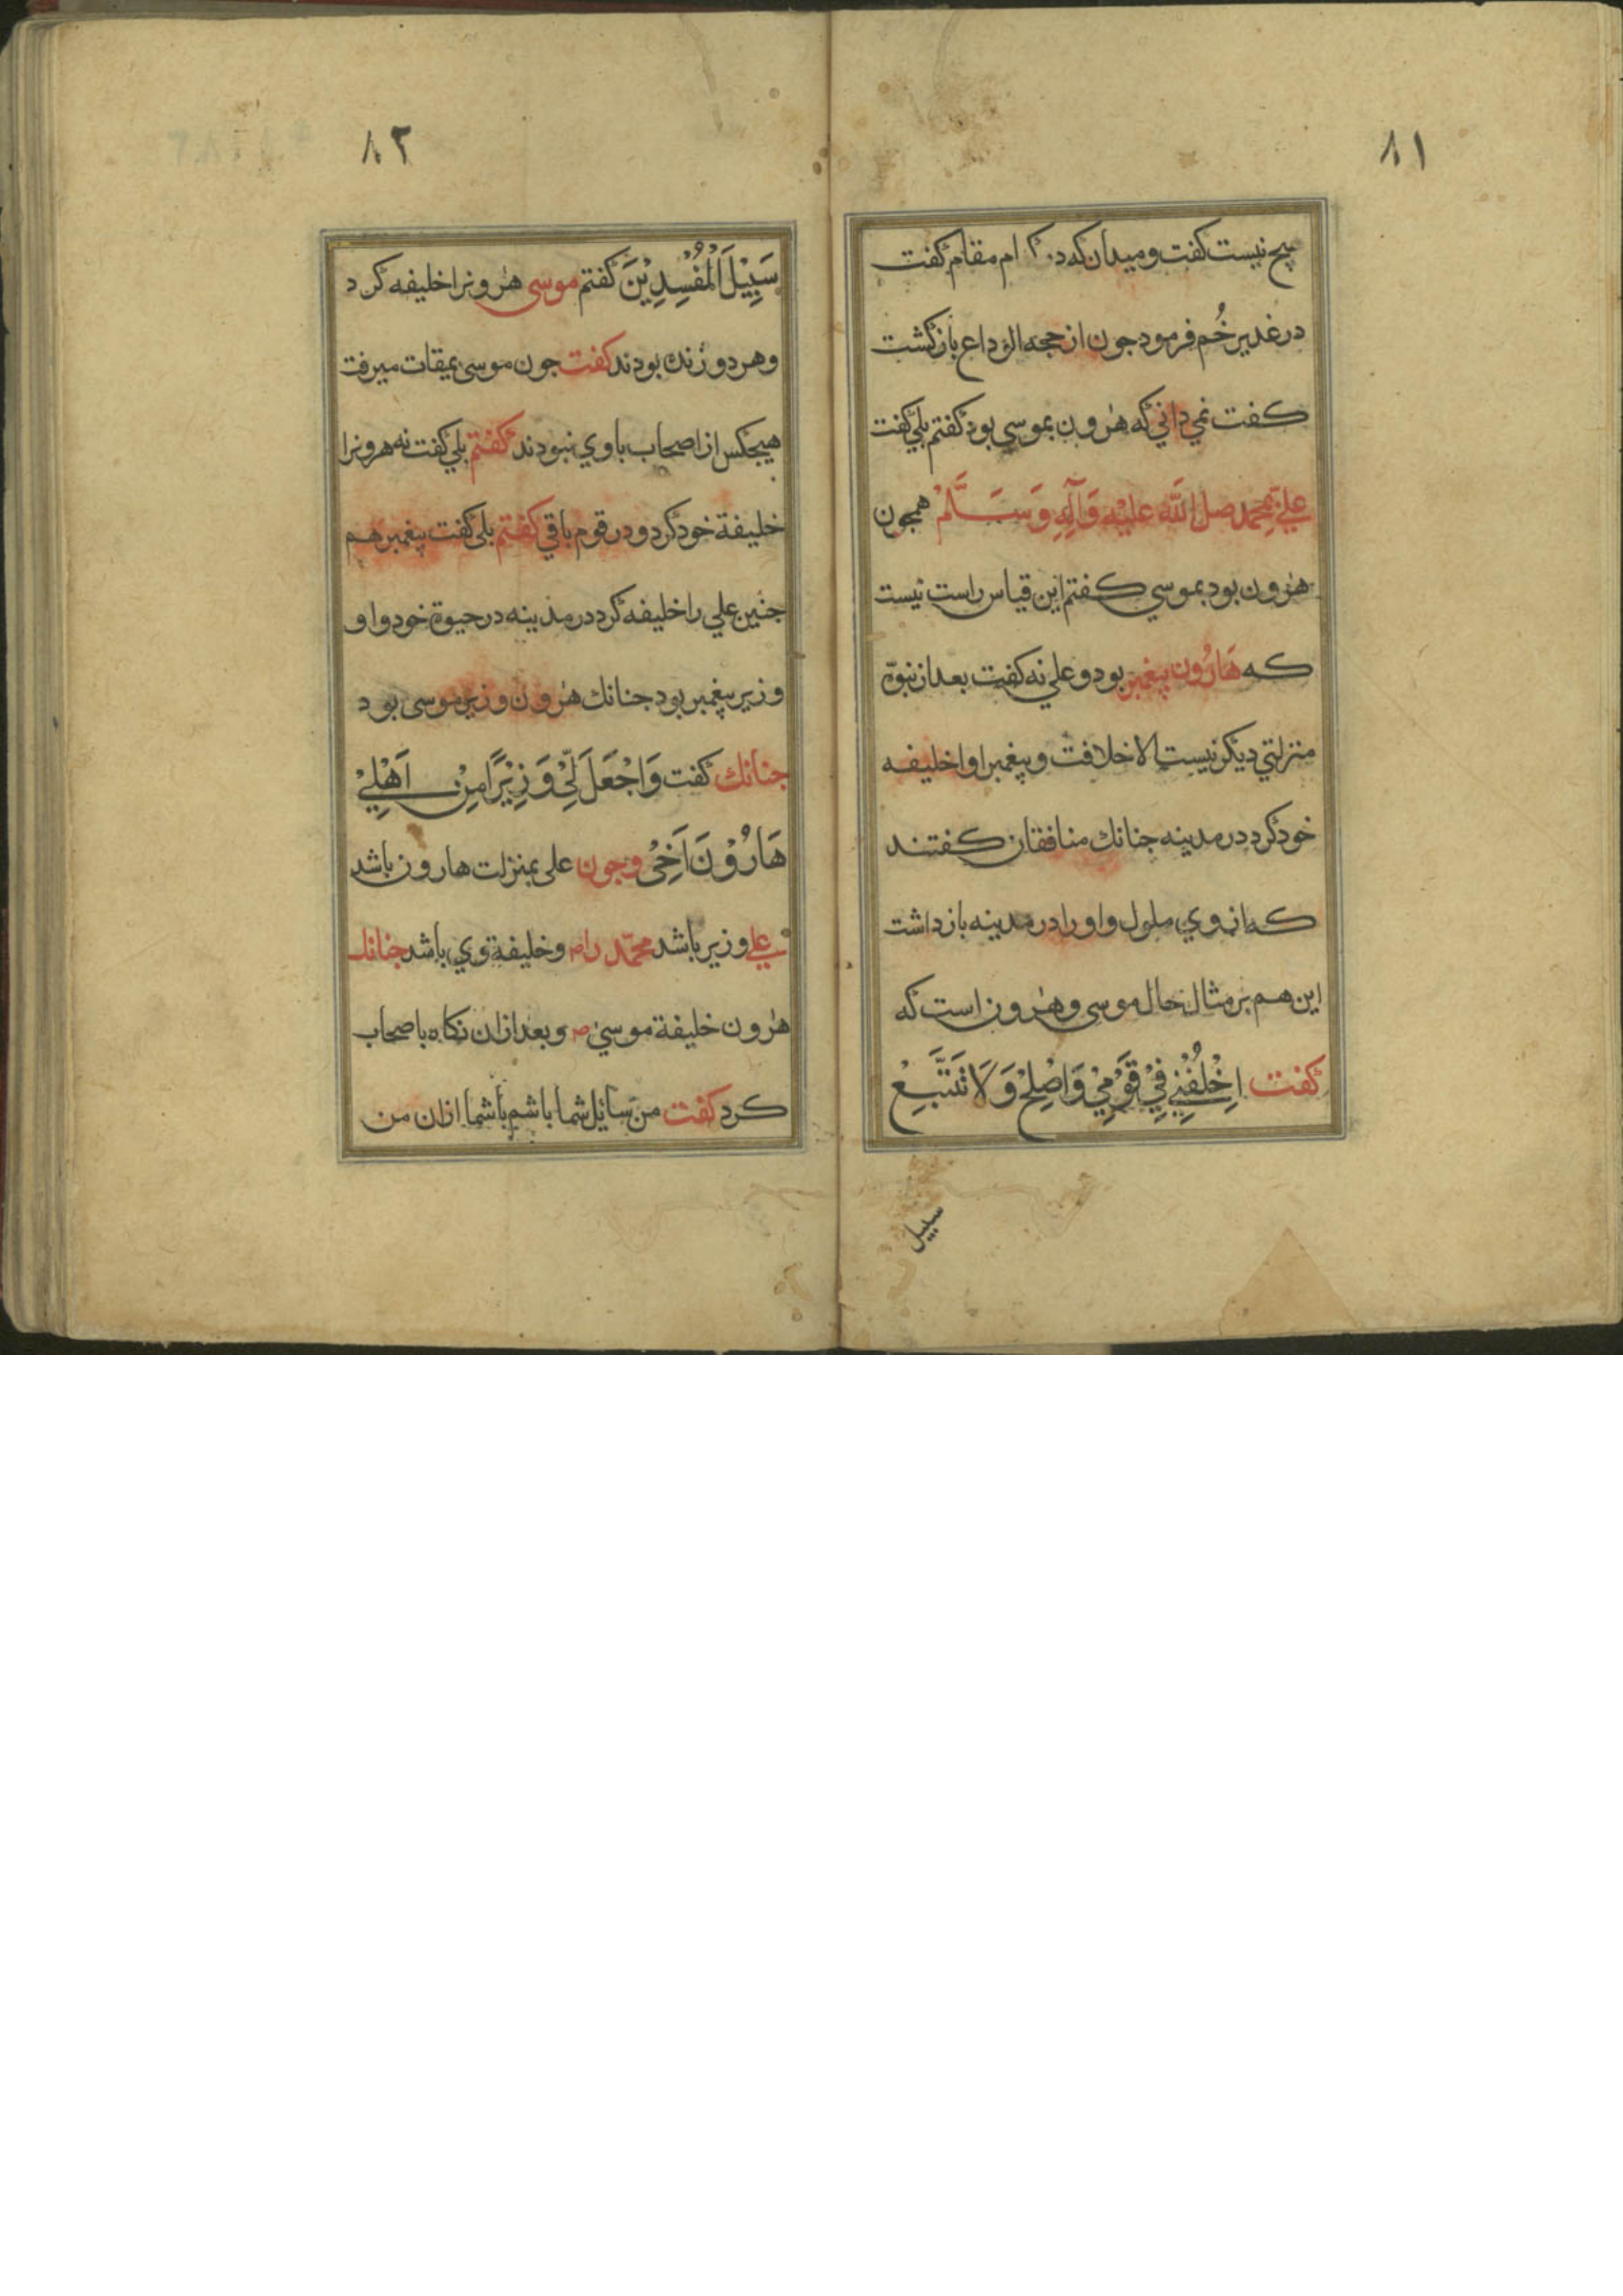 ۸۱
هیچ نیست کفت و میدان که در کدام مقام کفت
در غدیر خُم فرمود جون از حجه الوداع بازکشت
کفت نمی دانی که هٰرون بموسی بود کفتم بلی کفت
علیّ بمحمد صل اللّه علیْه وَآلِهِ وَسَلَّمْ همجون
هٰرون بود بموسی کفتم این قیاس راست نیست
که هَارُون پیغمبر بود و علی نه کفت بعد از نبوّة
منزلتی دیکر نیست الا خلافت و پیغمبر اوا خلیفه
خود کرد در مدینه جنانك منافقان کفتند
که از وی ملول و اورا در مدینه بازداشت
این هم بر مثال حال موسی و هٰرون است که
کفت اِخْلُفْنِیْ فِیْ قَوْمِیْ وَاَصْلِحْ وَلَا تَتَّبِعْ
سبیل
۸۲
سَبِیْلَ الْمُفْسِدِیْنَ کفتم موسی هٰرونرا خلیفه کرد
وهردو زنده بودند کفت جون موسی بمیقات میرفت
هیجکس از اصحاب باوی نبودند کفتم بلی کفت نه هرونرا
خلیفة خود کرد و در قوم باقی کفتم بلی کفت پیغمبر هم
جنین علی را خلیفه کرد در مدینه در حیوة خود و او
وزیر پیغمبر بود جنانك هٰرون وزیر موسی بود
جنانك کفت وَاجْعَلَ لِّیْ وَزِیْرًا مِنْ اَهْلِیْ
هَارُوْنَ اَخِیْ وجون علی بمنزلت هارون باشد
علی وزیر باشد محمّد راص وخلیفة وی باشد جنانك
هٰرون خلیفة موسیٰ ص و بعد ازان نکاه باصحاب
کرد کفت من سائل شما باشم یا شما ازان من